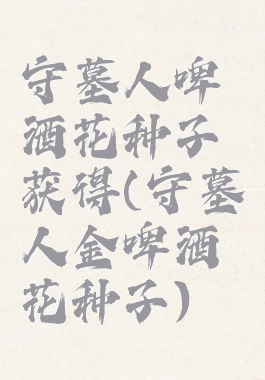 守墓人啤
酒花种子
获得(守墓
人金啤酒
花种子)